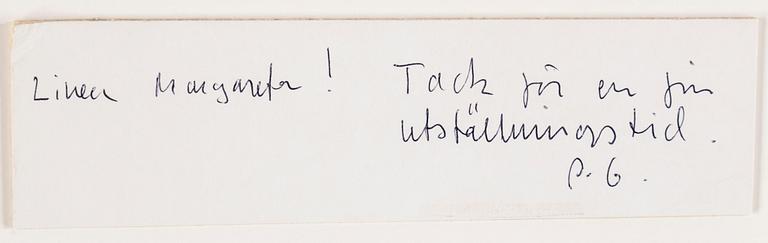 Linea Margareta! Tack för en fin
utställningstid.
P. G.